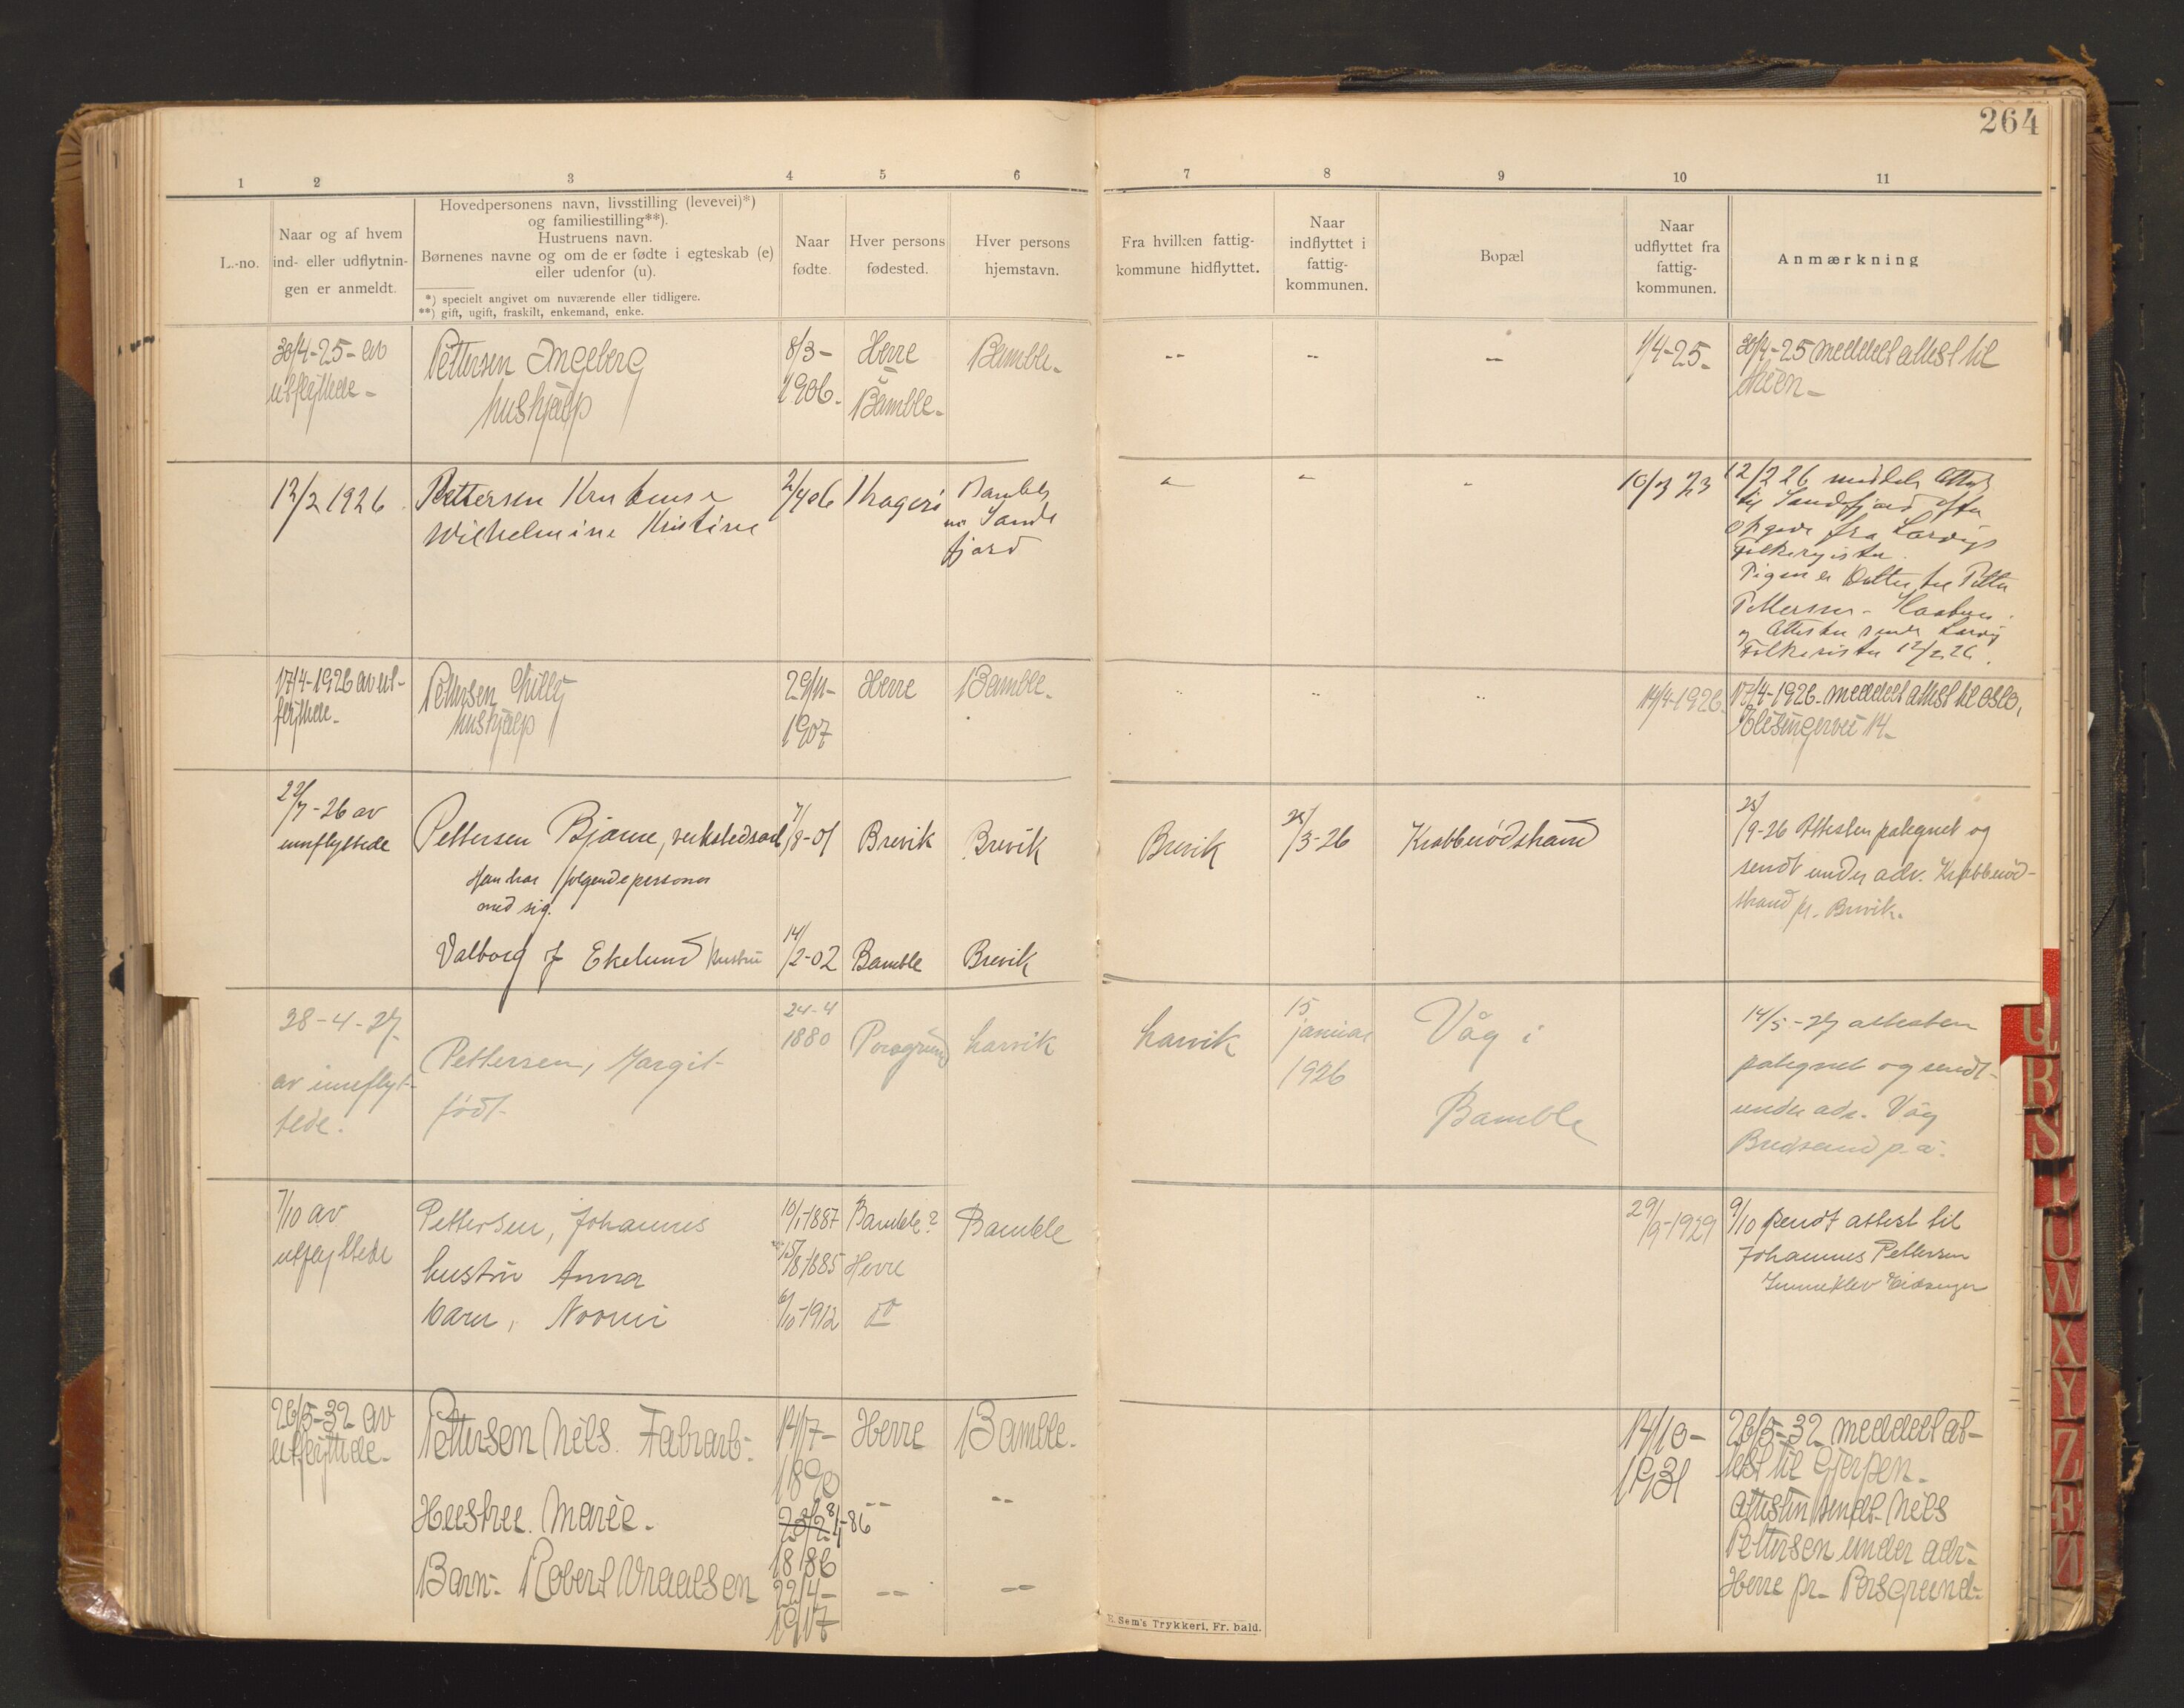 264
1 2 3 4 5 6 7 8 9 10 11
L.-no.
Naar og af hvem
ind- eller udflytnin-
gen er anmeldt.
Hovedpersonens navn, livsstilling (levevei)*)
og familiestilling**).
Hustruens navn.
Børnenes navne og om de er fødte i egteskab (e)
eller udenfor (u).
*) specielt angivet om nuværende eller tidligere.
**) gift, ugift, fraskilt, enkemand, enke.
Naar
fødte.
Hver persons
fødested.
Hver persons
hjemstavn.
Fra hvilken fattig-
kommune hidflyttet.
Naar
indflyttet i
fattig-
kommunen.
Bopæl
Naar
udflyttet fra
fattig-
kommunen.
Anmærkning
30/4-25- av
utflyttede-
Pettersen Ingeberg
hushjælp
8/3-
1906.
Herre
i
Bamble-
Bamble-
--
--
--
1/4-25-
30/4-25 meddelt attest til
Skien-
12/2 1926
Pettersen
Wilhelmine Kristine
2/4 06
Kragerø
Bamble
nu Sande
fjord
10/3 23
12/2 26 meddelt Attest
til Sandefjord efter
opgave fra Larviks
Folkeregister.
Pigen er Datter av Petter
Pettersen -
og Attesten sendt Larvik
Folkerister 12/2 26.
17/4-1926 av ut-
flyttede-
Pettersen Milly
hushjælp
29/11-
1907
Herre
Bamble-
14/4-1926.
17/4-1926- meddelt attest til Oslo,
14-
22/7-26 av
innflyttede
Pettersen Bjarne, verkstedsarb
Han har følgende personer
med sig.
Valborg f Ekelund hustru
7/8-01
14/2-02
Brevik
Bamble
Brevik
Brevik
Brevik
25/3-26
Krabberødstrand
25/9-26 Attesten pategnet og
sendt under adr. Krabberød-
strand pr. Brevik.
28-4-27
av innflyt-
tede.
Pettersen, Margit
født
24-4
1880
Porsgrund
Larvik
Larvik
15
januar
1926
Våg i
Bamble
14/5-27 attesten
pategnet og sendt
under adr. Våg
p.å.
7/10 av
utflyttede
Pettersen, Johannes
hustru Anna
barn, Noomi
10/1-1887
15/8 1885
6/10-1912
Bamble?
Herre
do
Bamble
29/9-1929
9/10 sendt attest til
Johannes Pettersen
Eidanger
26/5-32 av
utflyttede-
Pettersen Nils. Fabrarb-
Hustru. Marie.
Barn- Robert Wraalsen
14/7-
1890
23/2 8/4-86
1886
22/4-
1917
Herre
--
--
Bamble-
--
--
14/10-
1931
26/5-32 meddelt at-
test til Gjerpen-
Attesten sendt Nils
Pettersen under adr-
Herre pr- Porsgrund-
E. Sem's Trykkeri, Fr. hald.
Q
R
S
T
U
W
X
Y
Z
Æ